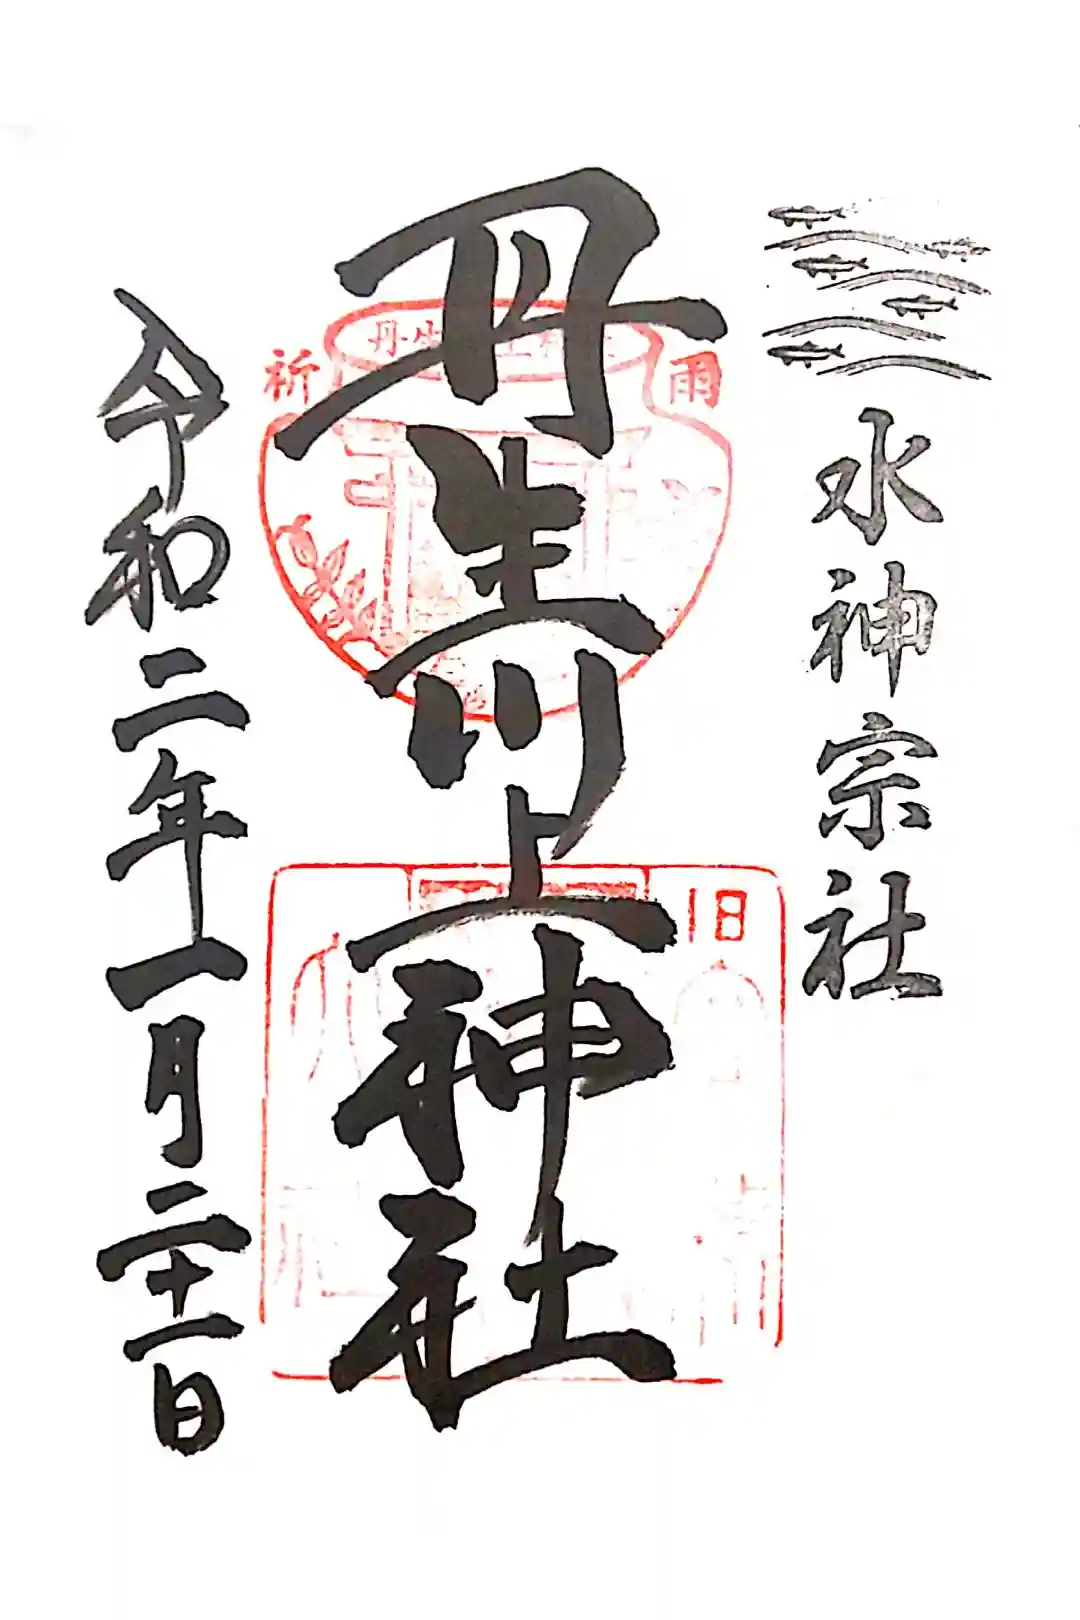 水神宗社
丹生川上神社
祈
雨
旧
令和二年一月二十一日